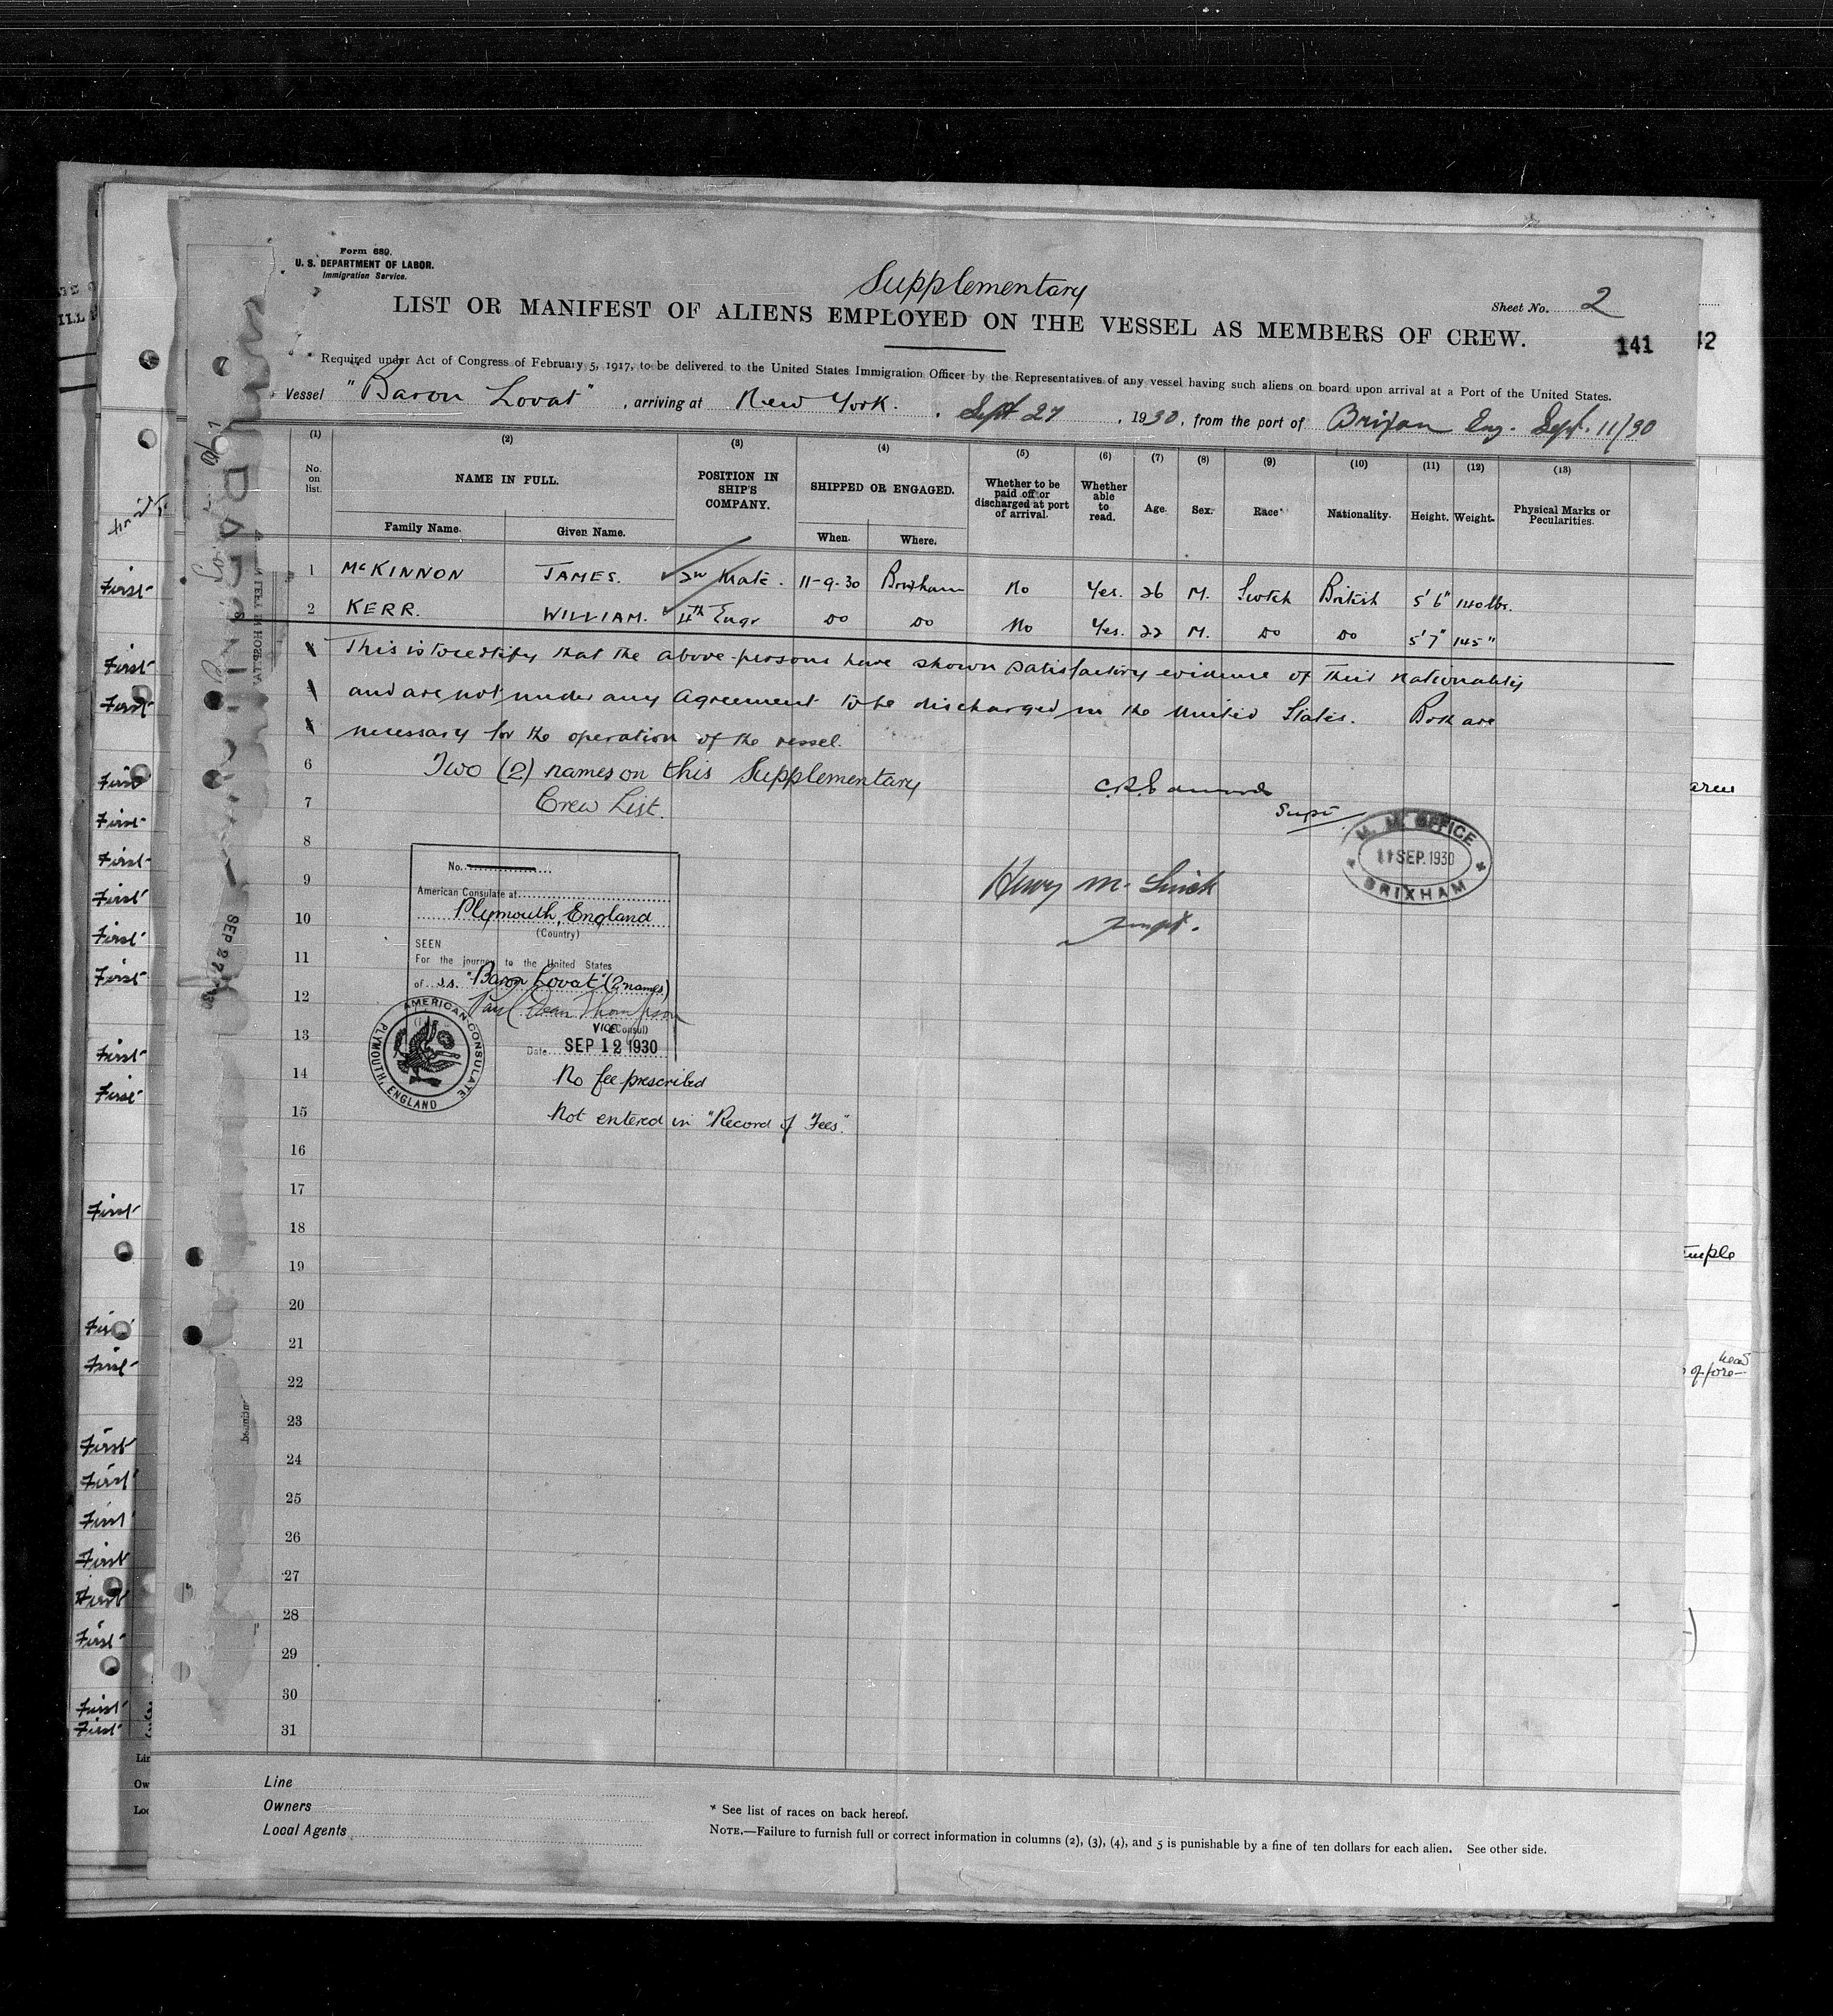 Form 680.
U. S. DEPARTMENT OF LABOR.
Immigration Service.
Supplementary
Sheet No. 2
LIST OR MANIFEST OF ALIENS EMPLOYED ON THE VESSEL AS MEMBERS OF CREW.
141
42
Required under Act of Congress of February 5, 1917, to be delivered to the United States Immigration Officer by the Representatives of any vessel having such aliens on board upon arrival at a Port of the United States.
Vessel "Baron Lovat", arriving at New York. Sept 27, 1930, from the port of Brixam Eng. Sept. 11/30
(1) (2) (3) (4) (5) (6) (7) (8) (9) (10) (11) (12) (13)
No. on list. NAME IN FULL. POSITION IN SHIP'S COMPANY. SHIPPED OR ENGAGED. Whether to be paid off or discharged at port of arrival. Whether able to read. Age. Sex. Race* Nationality. Height. Weight. Physical Marks or Pecularities.
Family Name. Given Name. When. Where.
1 McKINNON JAMES. 2n Mate. 11-9-30 Brixham No Yes. 26 M. Scotch British 5'6" 140 lbs.
2 KERR. WILLIAM. 4th Engr do do No Yes. 22 M. do do 5'7" 145"
This is to certify that the above persons have shown satisfactory evidence of their nationality
and are not under any Agreement to be discharged in the United States. Both are
necessary for the operation of the vessel.
6 Two (2) names on this Supplementary
7 Crew List.
C.R. Edmunds
Supt
M. M. OFFICE
11 SEP. 1930
BRIXHAM
8
No.
9
American Consulate at
Henry M.
10
Plymouth, England
(Country)
SEEN
11
For the journey to the United States
of s.s. "Baron Lovat" (2 names)
12
Paul Dean Thompson
VICE Consul)
13
Date SEP 12 1930
AMERICAN CONSULATE
PLYMOUTH, ENGLAND
14 No fee prescribed
15 Not entered in "Record of Fees".
16
17
18
19
20
21
22
23
24
25
26
27
28
29
30
31
Line
Owners
Local Agents
* See list of races on back hereof.
NOTE.—Failure to furnish full or correct information in columns (2), (3), (4), and 5 is punishable by a fine of ten dollars for each alien. See other side.
First
First
First
First
First
First
First
First
First
First
First
First
First
First
First
First
First
First
First
First
First
First